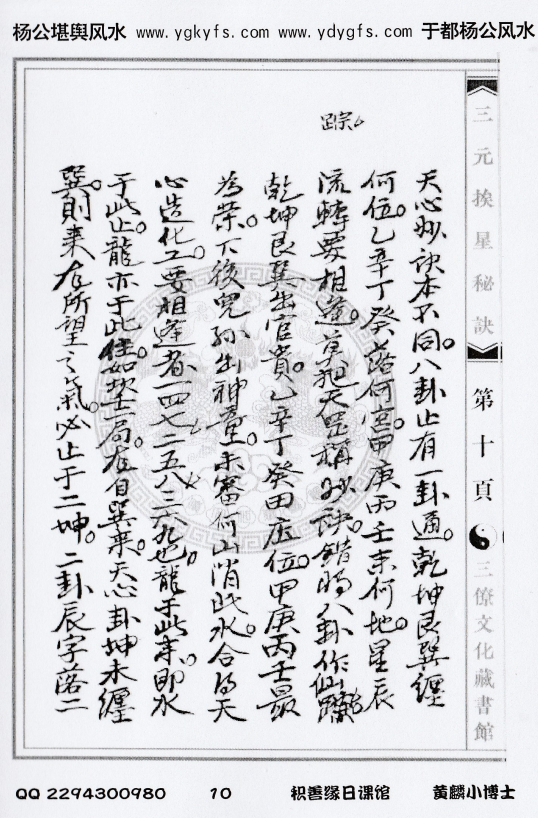 杨公堪舆风水 www.ygkyfs.com www.ydygfs.com 于都杨公风水
三元挨星秘訣
第十頁
三僚文化藏書館
天心妙訣本不同。八卦止有一卦通。乾坤艮巽纏
何位。乙辛丁癸落何宮。甲庚丙壬来何地。星辰
流轉要相逢。莫把天罡稱妙訣。錯将八卦作仙蹤
踪
乾坤艮巽出官貴。乙辛丁癸田庄位。甲庚丙壬最
為荣。下後兒孙出神童。未審何山消此水。合得天
心造化工。要相逢者一四七二五八三六九也。龍于此来。即水
于此止。龍亦于此住。如坎一局。在自巽来。天心卦坤未纏
巽。則来在所望之氣。必止于二坤。二卦辰字落二
QQ 2294300980
10
积善缘日课馆
黄麟小博士